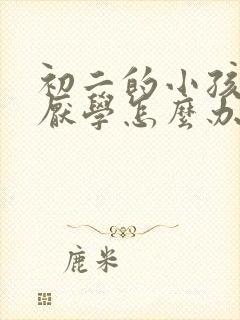 初二的小孩
厭學怎麼办
鹿米